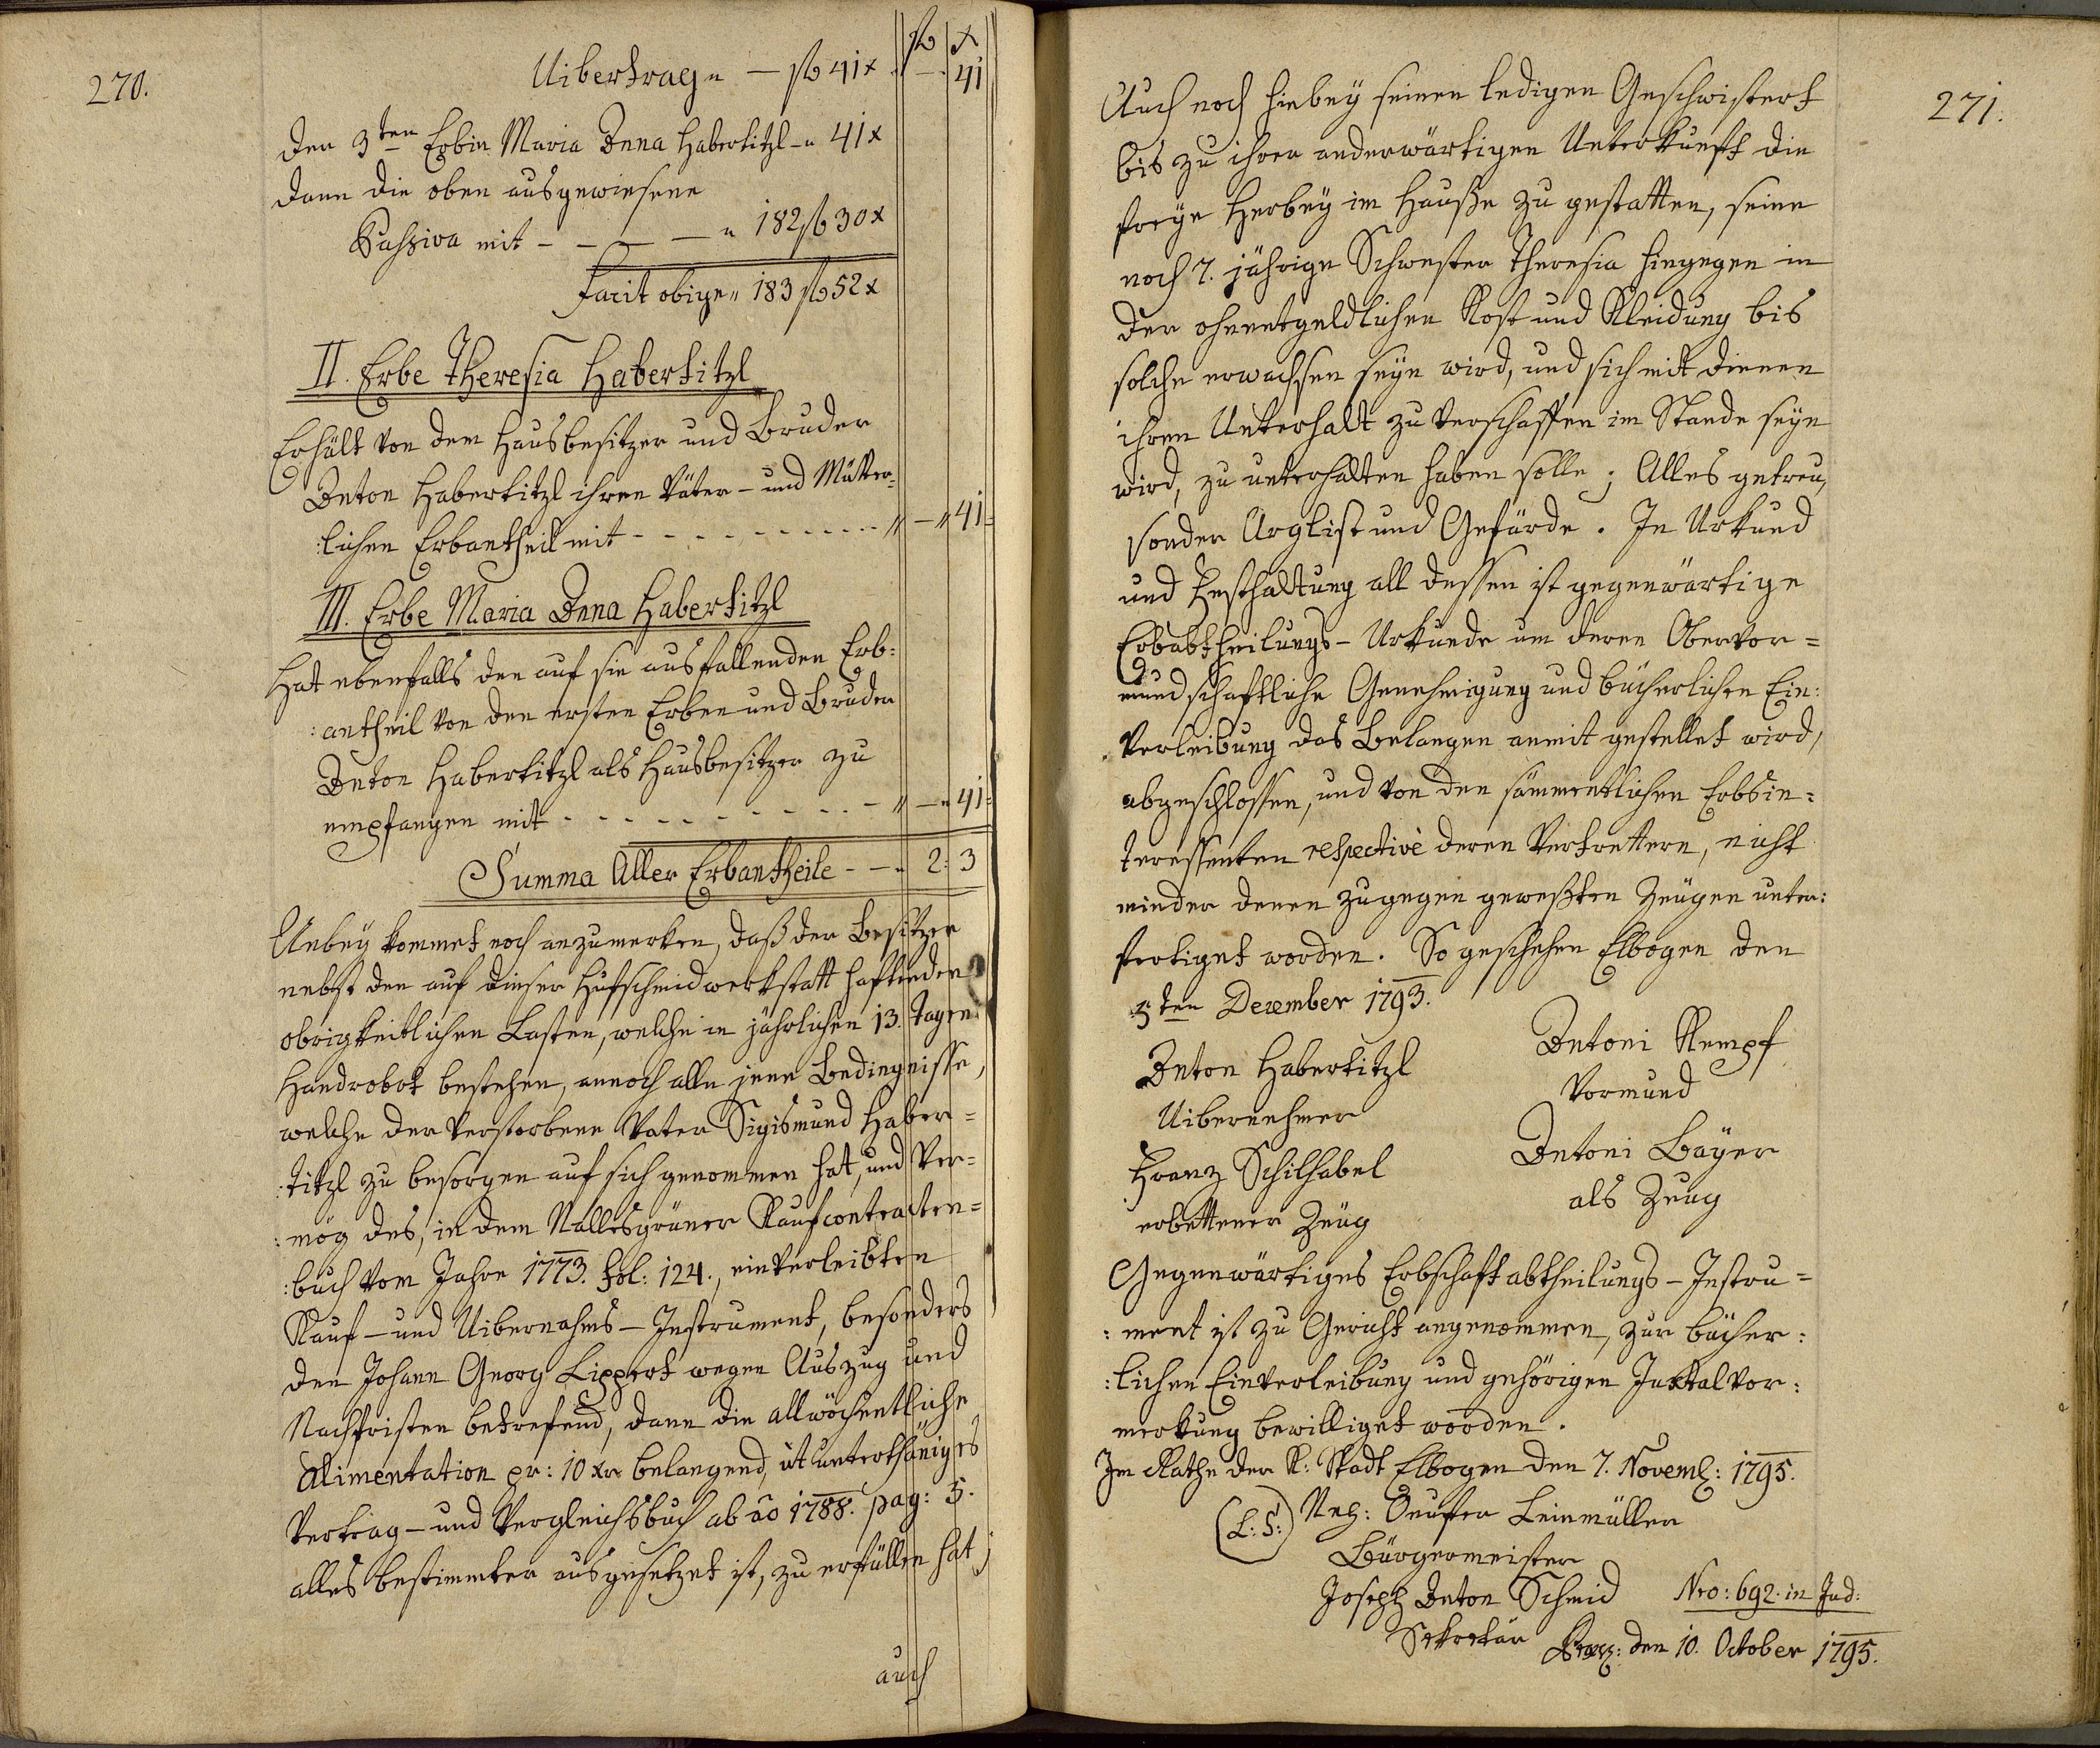 270.
fl x
Uibertrag „ — fl 41 x — 41
der 3ten Erbin Maria Anna Habertitzl „ 41 x
dann die oben ausgewiesene
Passiva mit - - - — „ 182 fl 30 x
Facit obige „ 183 fl 52 x
II. Erbe Theresia Habertitzl
Erhält von dem Hausbesitzer und Bruder
Anton Habertitzl ihren Väter- und Mütter-
:lichen Erbantheil mit - - - - - - - - - „ — „ 41
III. Erbe Maria Anna Habertitzl
Hat ebenfalls den auf sie ausfallenden Erb:
:antheil von den ersten Erben und Bruder
Anton Habertitzl als Hausbesitzer zu
empfangen mit - - - - - - - - - „ — „ 41
Summa Aller Erbantheile - - „ 2: 3
Anbey kommet noch anzumerken, daß der Besitzer
nebst den auf dieser Hufschmidwerkstatt haftenden
obrigkeitlichen Lasten, welche in jährlichen 13. Tagen
Handrobot bestehen, annoch alle jene Bedingnisse,
welche der verstorbene Vater Sigismund Haber=
:titzl zu besorgen auf sich genommen hat, und ver=
:mög des, in dem Nallesgrüner Kaufcontracten=
:buch vom Jahre 1773. fol: 124., einverleibten
Kauf- und Uibernahms-Instrument, besonders
den Johann Georg Lippert wegen Auszug und
Nachfristen betrefend, dann die allwöchentliche
Alimentation pr: 10 xr belangend, ut unterthäniges
Vertrag- und Vergleichsbuch ab ao 1788. pag: 5.
alles bestimmter ausgesetzet ist, zu erfüllen hat;
auch
271.
Auch noch hiebey seinen ledigen Geschwistert
bis zu ihrer anderwärtigen Unterkunft die
freye Herbey im Hauße zu gestatten, seine
noch 7. jährige Schwester Theresia hingegen in
der ohnentgeldlichen Kost und Kleidung bis
solche erwachsen seyn wird, und sich mit dienen
ihren Unterhalt zu verschaffen im Stande seyn
wird, zu unterhalten haben solle; Alles getreu,
sonder Arglist und Gefärde. In Urkund
und Festhaltung all dessen ist gegenwärtige
Erbabtheilungs-Urkunde um deren Obervor=
mundschaftliche Genehmigung und bücherlichen Ein:
verleibung das Belangen anmit gestellet wird,
abgeschlossen, und von den sämmentlichen Erbsin=
teressenten respective deren Vertrettern, nicht
minder denen zugegen geweßten Zeügen unter:
fertiget worden. So geschehen Elbogen den
5ten December 1793.
Anton Habertitzl Antoni Kempf
Uibernehmer Vormund
Franz Schilhabel Antoni Bayer
erbettener Zeüg als Zeug
Gegenwärtiges Erbschaftabtheilungs-Instru=
:ment ist zu Gericht angenommen, zur bücher:
:lichen Einverleibung und gehörigen Juxtalvor:
merkung bewilliget worden.
Im Rathe der K: Stadt Elbogen den 7. Novemb: 1795.
(L: S:) Leinmüller
Bürgermeister
Joseph Anton Schmid Nro: 692. in Jud:
Sekretär Praes: den 10. October 1795.